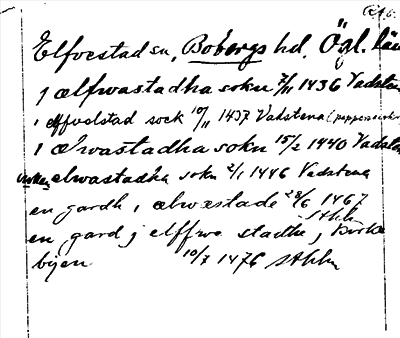 Elfvestad sn, Bobergs hd, Ögl. län
j ælffwastadha sokn 7/11 1436 Vadstena
i elffvalstad sock 10/11 1437 Vadstena
i ælwastadha sokn 15/2 1440 Vadstena
elwastadha sokn 2/1 1446 Vadstena
en gardh i ælwastade 28/6 1467
en gard j elffwa stadhe j
byen 10/7 1476